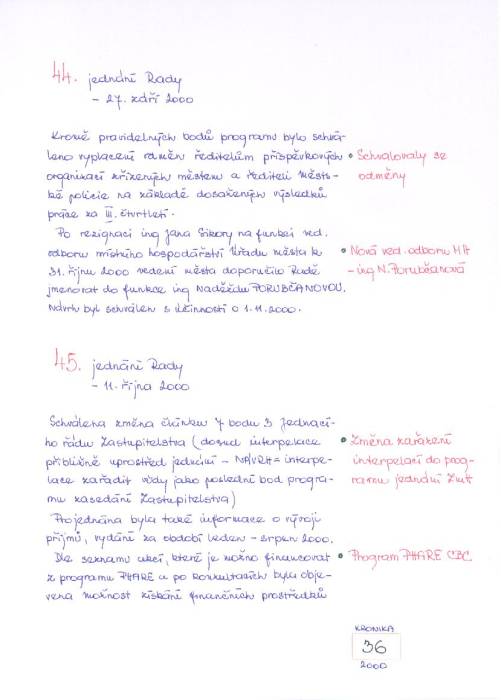 44. jednání Rady
- 27. září 2000
Kromě pravidelných bodů programu bylo schvá-
leno vyplacení odměn ředitelům příspěvkových
organizací zřízených městem a řediteli městs-
ké policie na základě dosažených výsledků
práce za III. čtvrtletí.
• Schvalovaly se
odměny
Po rezignaci ing Jana Sikory na funkci ved.
odboru místního hospodářství Úřadu města k
31. říjnu 2000 vedení města doporučilo Radě
jmenovat do funkce ing Naděždu PORUBČANOVOU.
Návrh byl schválen s účinností o 1.11.2000.
• Nová ved. odboru MH
- ing N. Porubčanová
45. jednání Rady
- 11. října 2000
Schválena změna článku 7 bodu 3 Jednací-
ho řádu Zastupitelstva (dosud interpelace
přibližně uprostřed jednání - NÁVRH = interpe-
lace zařadit vždy jako poslední bod progra-
mu zasedání Zastupitelstva)
• Změna zařazení
interpelaní do prog-
ramu jednání ZMt
Projednána byla také informace o vývoji
příjmů, vydání za období leden - srpen 2000.
Dle seznamu akcí, které je možno financovat
z programu PHARE a po konzultacích byla obje-
vena možnost získání finančních prostředků
• Program PHARE CBC
KRONIKA
36
2000